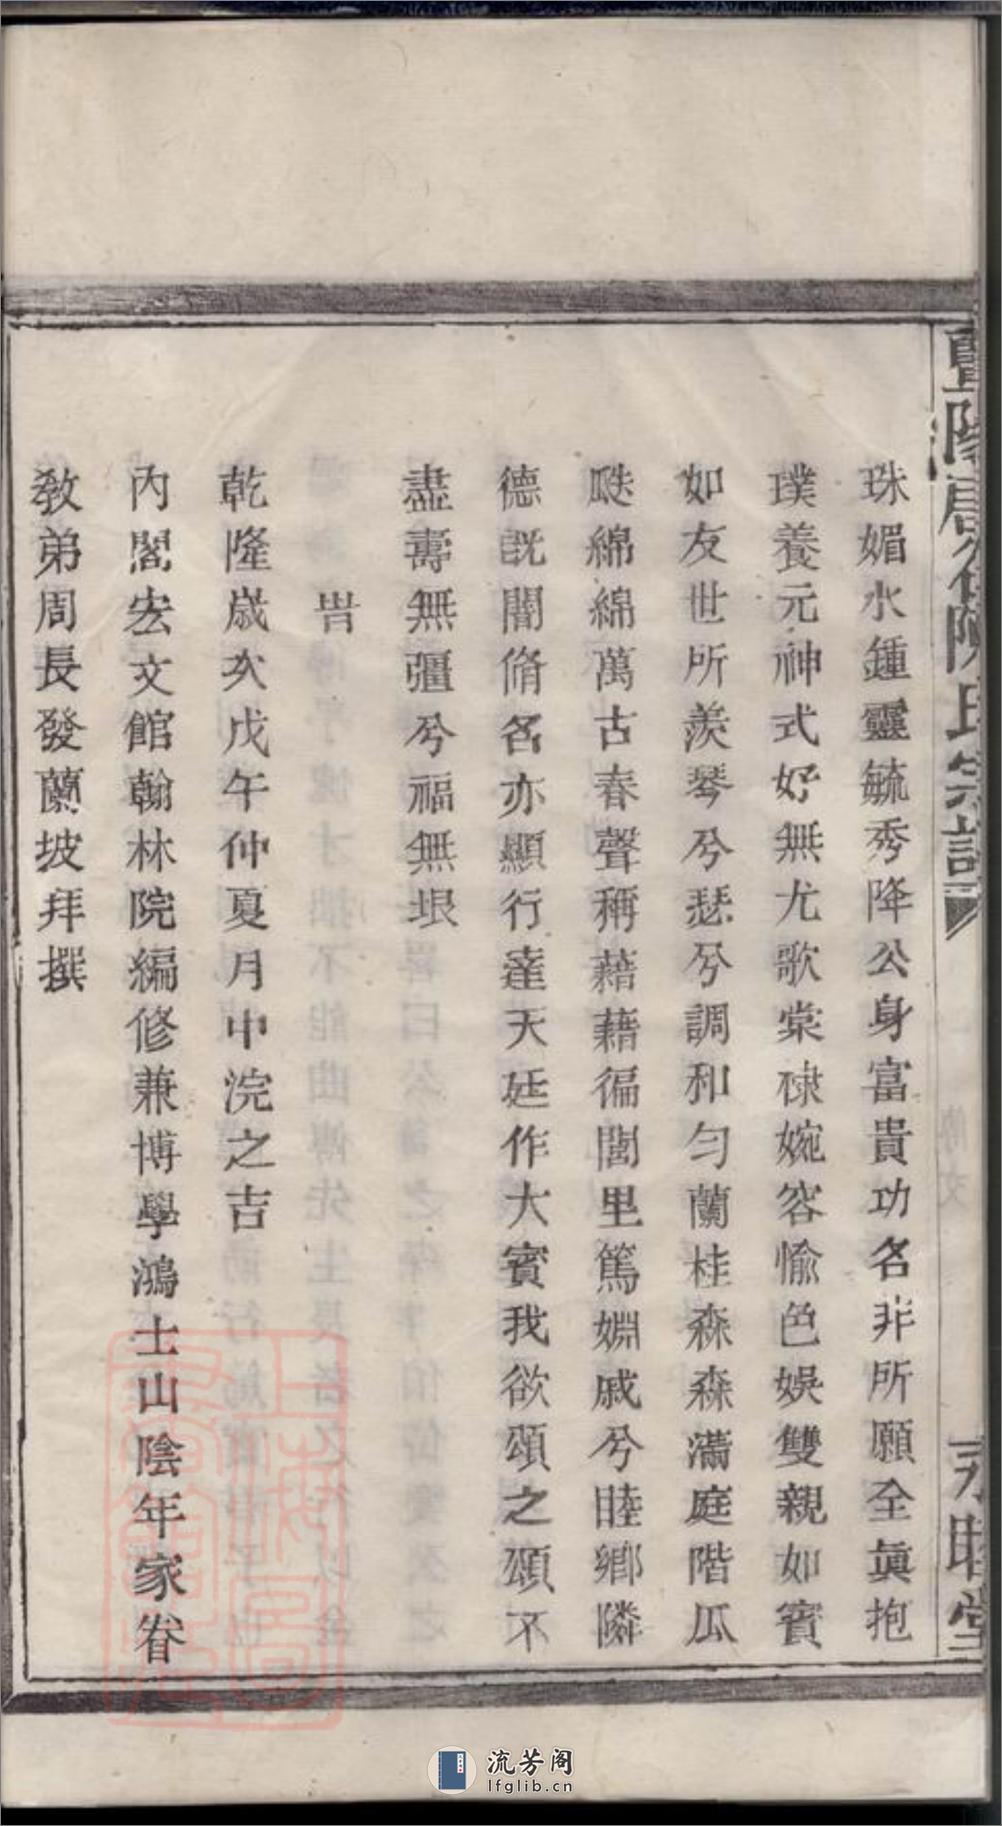 暨陽
陳氏宗譜
永睦堂
珠媚水鍾靈毓秀降公身富貴功名非所願全眞抱
璞養元神式好無尤歌棠棣婉容愉色娛雙親如賓
如友世所羨琴兮瑟兮調和勻蘭桂森森滿庭階瓜
瓞綿綿萬古春聲稱藉藉徧閭里篤婣戚兮睦鄉隣
德旣闇脩名亦顯行達天廷作大賓我欲頌之頌不
盡壽無疆兮福無垠
旹
乾隆歲次戊午仲夏月中浣之吉
內閣宏文館翰林院編修兼博學鴻士山陰年家眷
敎弟周長發蘭坡拜撰
流芳阁
lfglib.cn